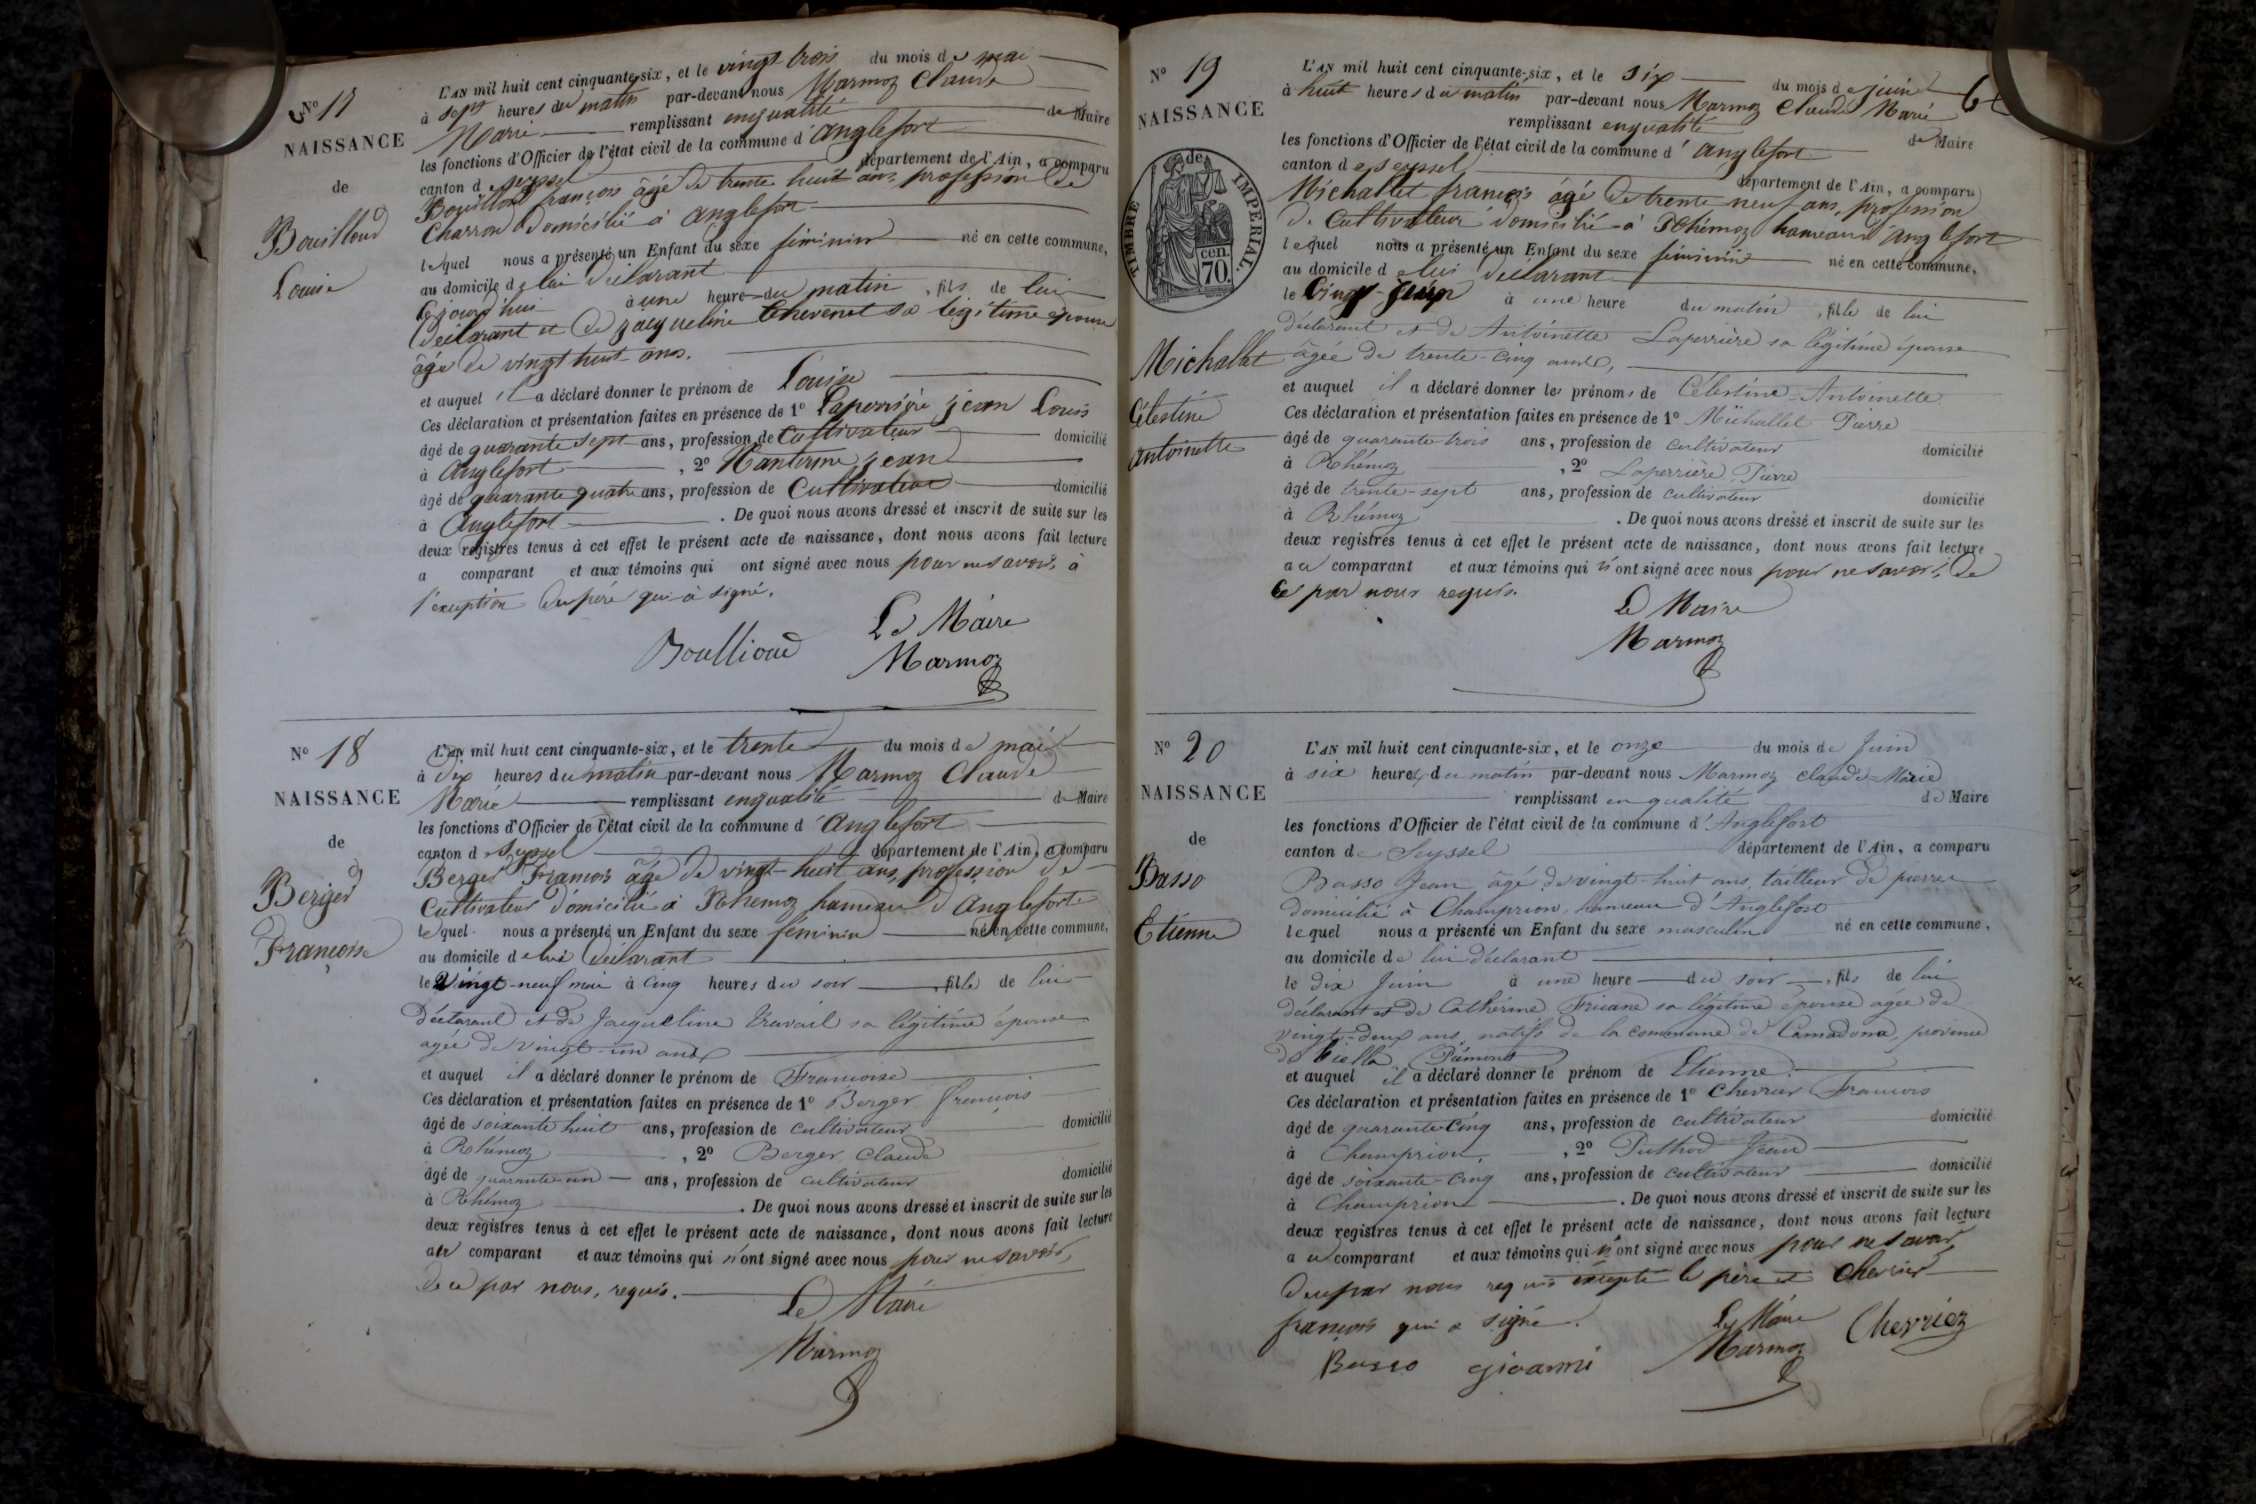 N° 17
NAISSANCE
de
Bouilloud
Louise
L'AN mil huit cent cinquante-six, et le vingt trois du mois de mai
à sept heures du matin par-devant nous Marmoz Claude
Marie remplissant en qualité de Maire
les fonctions d'Officier de l'état civil de la commune d'Anglefort
canton de Seyssel département de l'Ain, a comparu
Bouilloud françois âgé de trente huit ans, profession de
Charron domicilié à Anglefort
lequel nous a présenté un Enfant du sexe féminin né en cette commune,
au domicile de lui déclarant
cejourd'hui à une heure du matin, fils de lui
déclarant et de jacqueline Chevenet sa légitime épouse
âgée de vingt huit ans.
et auquel il a déclaré donner le prénom de Louise
Ces déclaration et présentation faites en présence de 1° Laperrière jean Louis
âgé de quarante sept ans, profession de Cultivateur domicilié
à Anglefort, 2° jean
âgé de quarante quatre ans, profession de Cultivateur domicilié
à Anglefort. De quoi nous avons dressé et inscrit de suite sur les
deux registres tenus à cet effet le présent acte de naissance, dont nous avons fait lecture
a comparant et aux témoins qui ont signé avec nous pour ne savoir, à
l'exeption du père qui à signé.
Le Maire
Boullioud Marmoz
N° 18
NAISSANCE
de
Berger
Françoise
L'AN mil huit cent cinquante-six, et le trente du mois de mai
à dix heures du matin par-devant nous Marmoz Claude
Marie remplissant en qualité de Maire
les fonctions d'Officier de l'état civil de la commune d'Anglefort
canton de Seyssel département de l'Ain, a comparu
Berger François âgé de vingt-huit ans, profession de
Cultivateur domicilié à Rhemoz hameau d'Anglefort
lequel nous a présenté un Enfant du sexe féminin né en cette commune,
au domicile de lui déclarant
le Vingt-neuf mai à cinq heures du soir, fille de lui
déclarant et de Jacqueline Travail sa légitime épouse
agée de vingt-un ans
et auquel il a déclaré donner le prénom de Françoise
Ces déclaration et présentation faites en présence de 1° Berger francois
âgé de soixante huit ans, profession de cultivateur domicilié
à Rhémoz, 2° Berger Claude
âgé de quarante-un ans, profession de cultivateur domicilié
à Rhémoz. De quoi nous avons dressé et inscrit de suite sur les
deux registres tenus à cet effet le présent acte de naissance, dont nous avons fait lecture
au comparant et aux témoins qui n'ont signé avec nous pour ne savoir,
de ce par nous, requis.
Le Maire
Marmoz
N° 19
NAISSANCE
de
TIMBRE IMPERIAL.
70. cen.
Michallet
Célestine
Antoinette
L'AN mil huit cent cinquante-six, et le six du mois de juin
à huit heures du matin par-devant nous Marmoz Claude Marie
remplissant en qualité de Maire
les fonctions d'Officier de l'état civil de la commune d'Anglefort
canton de Seyssel département de l'Ain, a comparu
Michallet francois âgé de trente neuf ans, profession
de Cultivateur domicilié à Rhémoz hameau d'Anglefort
lequel nous a présenté un Enfant du sexe féminin né en cette commune,
au domicile de lui déclarant
le juin à une heure du matin, fille de lui
déclarant et de Antoinette Laperrière sa légitime épouse
âgée de trente-cinq ans,
et auquel il a déclaré donner les prénoms de Célestine-Antoinette
Ces déclaration et présentation faites en présence de 1° Michallet Pierre
âgé de quarante-trois ans, profession de cultivateur domicilié
à Rhémoz, 2° Laperrière Pierre
âgé de trente-sept ans, profession de cultivateur domicilié
à Rhémoz. De quoi nous avons dressé et inscrit de suite sur les
deux registres tenus à cet effet le présent acte de naissance, dont nous avons fait lecture
au comparant et aux témoins qui n'ont signé avec nous pour ne savoir, de
ce par nous requis.
Le Maire
Marmoz
N° 20
NAISSANCE
de
Basso
Etienne
L'AN mil huit cent cinquante-six, et le onze du mois de Juin
à six heures du matin par-devant nous Marmoz Claude-Marie
remplissant en qualité de Maire
les fonctions d'Officier de l'état civil de la commune d'Anglefort
canton de Seyssel département de l'Ain, a comparu
Basso Jean âgé de vingt-huit ans, tailleur de pierre
domicilié à Champrion, hameau d'Anglefort
lequel nous a présenté un Enfant du sexe masculin né en cette commune,
au domicile de lui déclarant
le dix Juin à une heure du soir, fils de lui
déclarant et de Cathérine sa légitime épouse agée de
vingt-deux ans, natifs de la commune de Camadona, province
de biella Piémont
et auquel il a déclaré donner le prénom de Etienne.
Ces déclaration et présentation faites en présence de 1° Chevrier Francois
âgé de quarante-cinq ans, profession de cultivateur domicilié
à Champrion, 2° Puthod Jean
âgé de soixante-cinq ans, profession de cultivateur domicilié
à Champrion. De quoi nous avons dressé et inscrit de suite sur les
deux registres tenus à cet effet le présent acte de naissance, dont nous avons fait lecture
au comparant et aux témoins qui n'ont signé avec nous pour ne savoir
de ce par nous requis excepté le père et Chevrier
françois qui a signé.
Le Maire
Basso giovanni Marmoz Chevriez